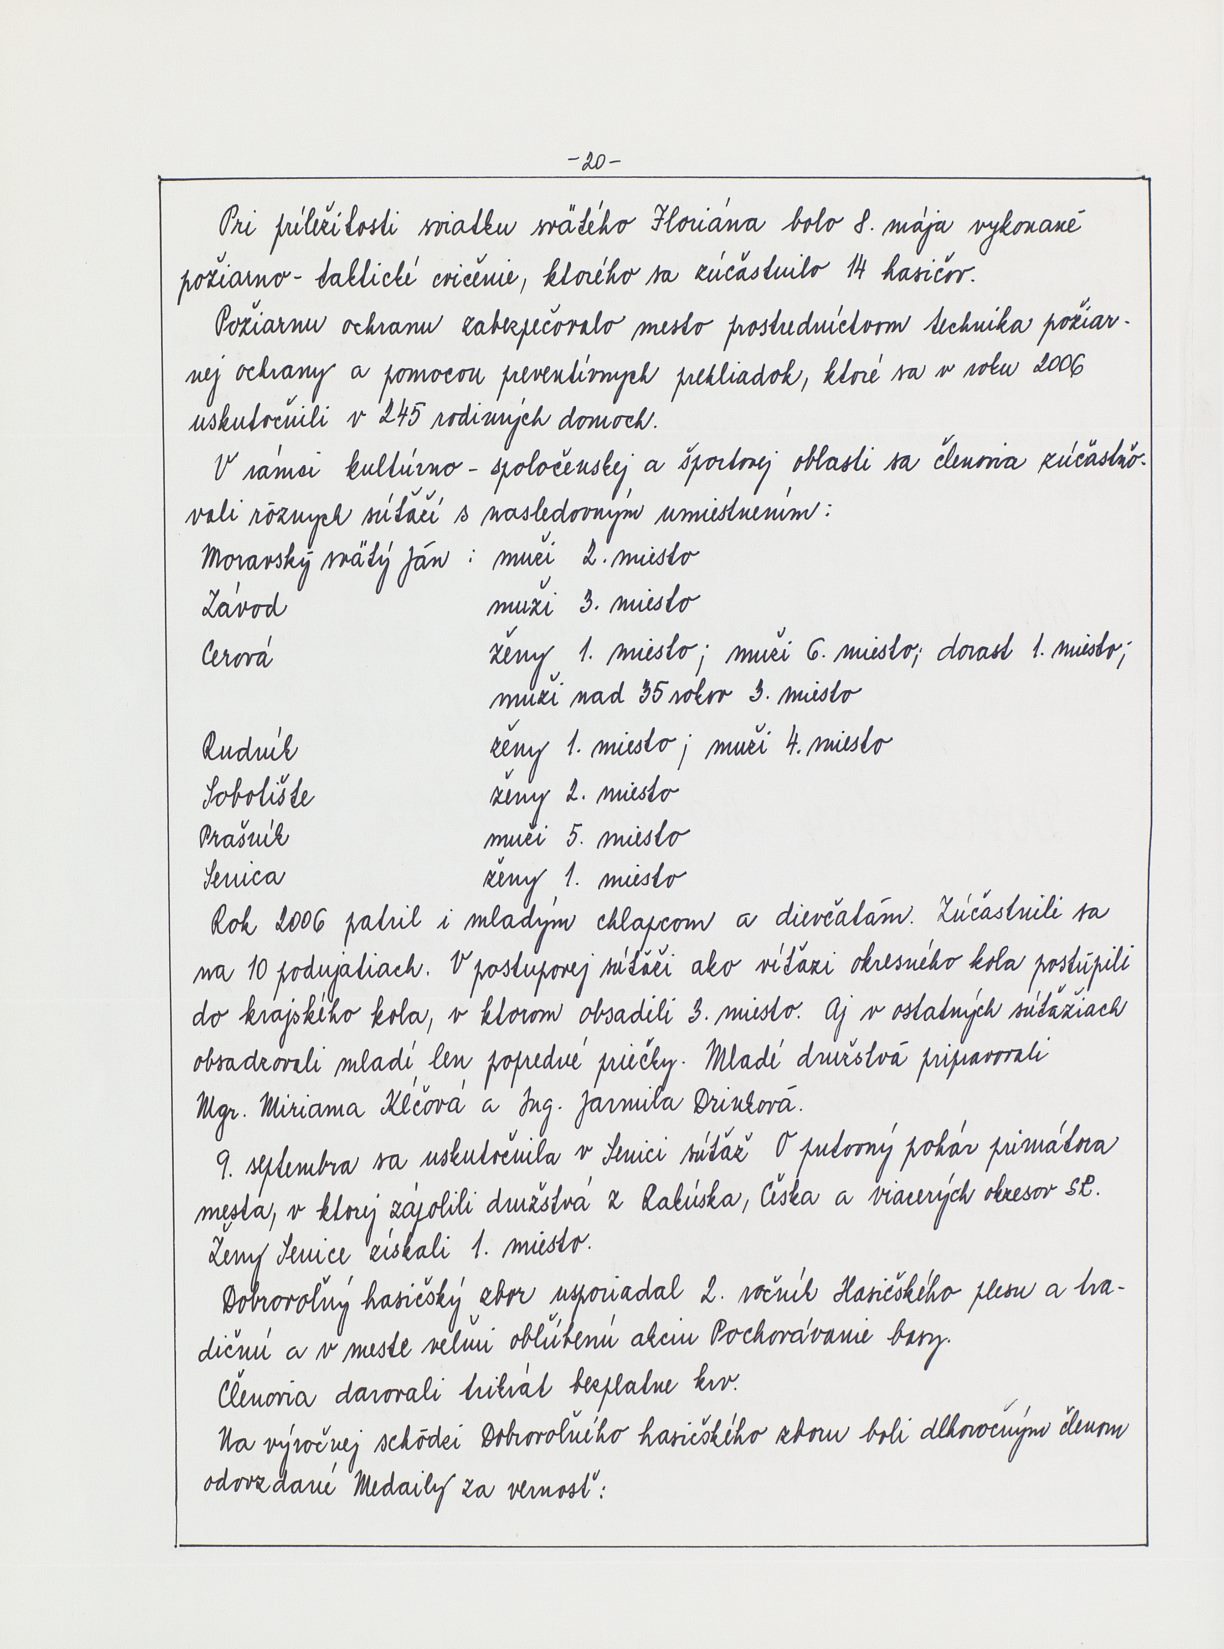 -20-
Pri príležitosti sviatku svätého Floriána bolo 8. mája vykonané
požiarno-taktické cvičenie, ktorého sa zúčastnilo 14 hasičov.
Požiarnu ochranu zabezpečovalo mesto prostredníctvom technika požiar-
nej ochrany a pomocou preventívnych prehliadok, ktoré sa v roku 2006
uskutočnili v 245 rodinných domoch.
V rámci kultúrno-spoločenskej a športovej oblasti sa členovia zúčastňo-
vali rôznych súťaží s nasledovným umiestnením:
Moravský svätý Ján : muži 2. miesto
Závod muži 3. miesto
Cerová ženy 1. miesto; muži 6. miesto; dorast 1. miesto;
muži nad 35 rokov 3. miesto
Rudník ženy 1. miesto; muži 4. miesto
Sobotište ženy 2. miesto
Prašník muži 5. miesto
Senica ženy 1. miesto
Rok 2006 patril i mladým chlapcom a dievčatám. Zúčastnili sa
na 10 podujatiach. V postupovej súťaži ako víťazi okresného kola postúpili
do krajského kola, v ktorom obsadili 3. miesto. Aj v ostatných súťažiach
obsadzovali mladí len popredné priečky. Mladé družstvá pripravovali
Mgr. Miriama Kĺčová a Ing. Jarmila Drinková.
9. septembra sa uskutočnila v Senici súťaž O putovný pohár primátora
mesta, v ktorej zápolili družstvá z Rakúska, Česka a viacerých okresov SR.
Ženy Senice získali 1. miesto.
Dobrovoľný hasičský zbor usporiadal 2. ročník Hasičského plesu a tra-
dičnú a v meste veľmi obľúbenú akciu Pochovávanie basy.
Členovia darovali trikrát bezplatne krv.
Na výročnej schôdzi Dobrovoľného hasičského zboru boli dlhoročným členom
odovzdané Medaily za vernosť: